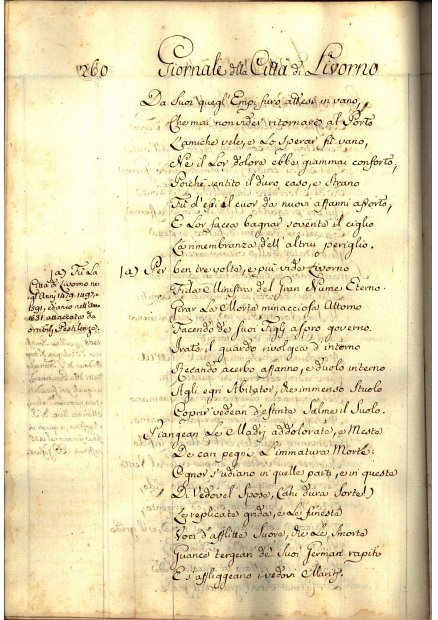 260 Giornale della Città di Livorno
Da Suoi quegl'Empi furo attesi in vano,
Che mai non vider ritornare al Porto
L'amiche vele, e Lo Sperar fù vano,
Ne il Lor dolore ebbe giammai conforto,
Poiche sentito il duro caso, e strano
Fù d'essi il cuor da nuovi affanni assorto,
E Lor facea bagnar sovente il ciglio
La rimembranza dell'altrui periglio.
(a) Fù La
Città di Livorno ne
gl'Anni 1479. 1497. e
1591, ed anco nell'
attaccata da
orribil Pestilenza.
(a) Per ben tre volte, e più vide Livorno
Fida Ministra del Gran Nume Eterno
Girar La Morte minacciosa Attorno
Facendo de' Suoi Figlj aspro governo.
Irato il guardo rivolgea d'intorno
Recando acerbo affanno, e duolo interno
Agli egri Abitator, che immenso Stuolo
Coprir vedean d'estinte Salme il Suolo.
Piangean Le Madrj addolorate, e Meste
De cari pegni L'immatura Morte:
Ognor s'udiano in quelle parti, e in queste
Di Vedovel Spose, (ahi dura Sorte!)
Le replicate grida, e Le funeste
Voci d'afflitte Suore, che Le Smorte
Guance tergean de' Suoi German rapiti
E s'affliggeano i vedovi Mariti.